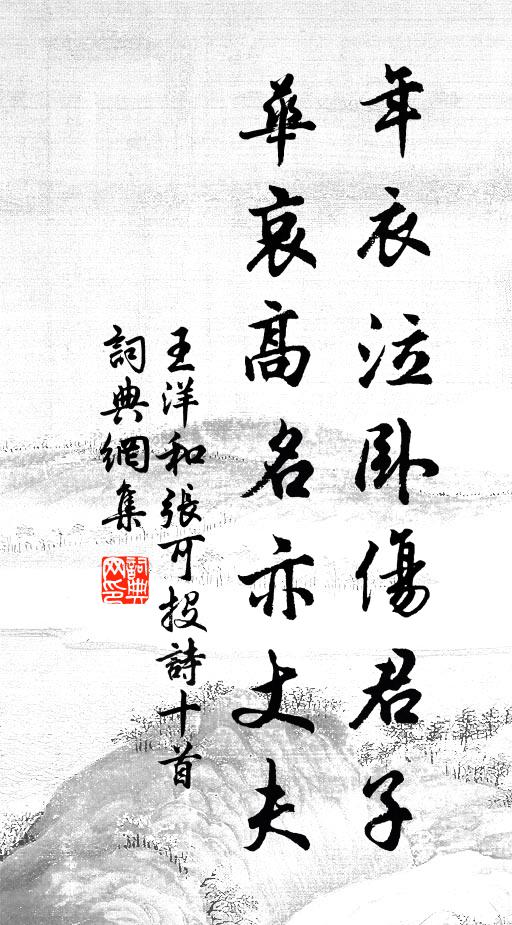 年衣泣臥傷君子
華哀高名亦丈夫
王洋和張可投詩十首
詞典網集
詞典網印